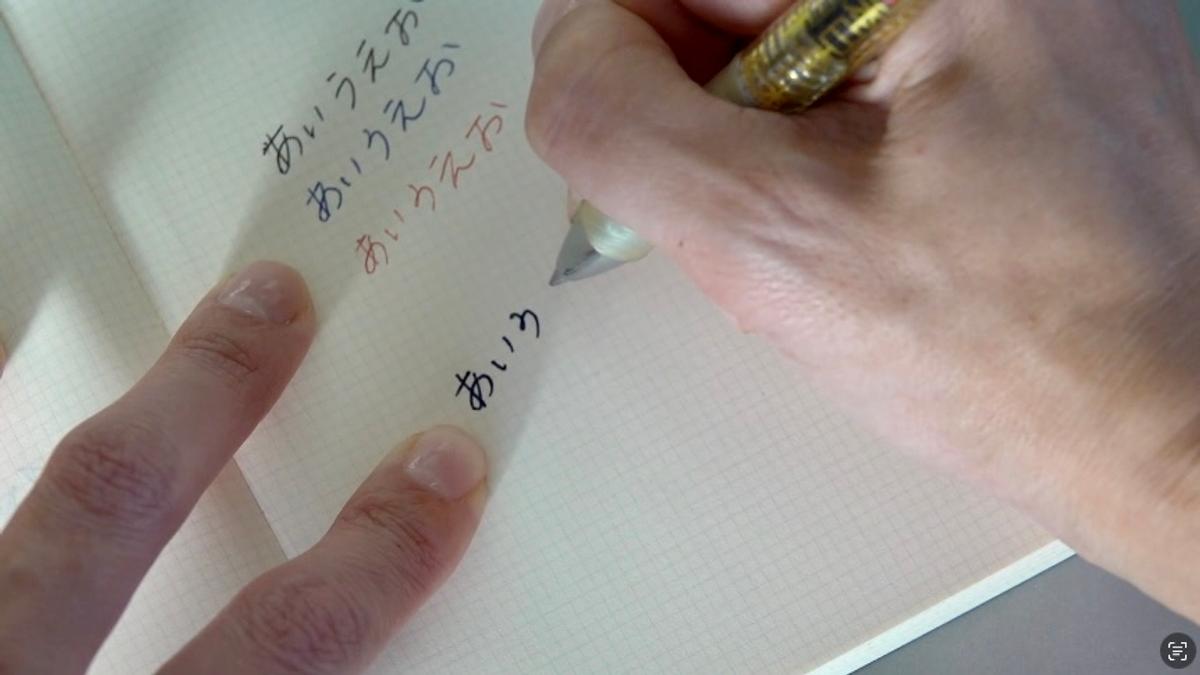 あいうえお
あいうえお
あいうえお
あいう